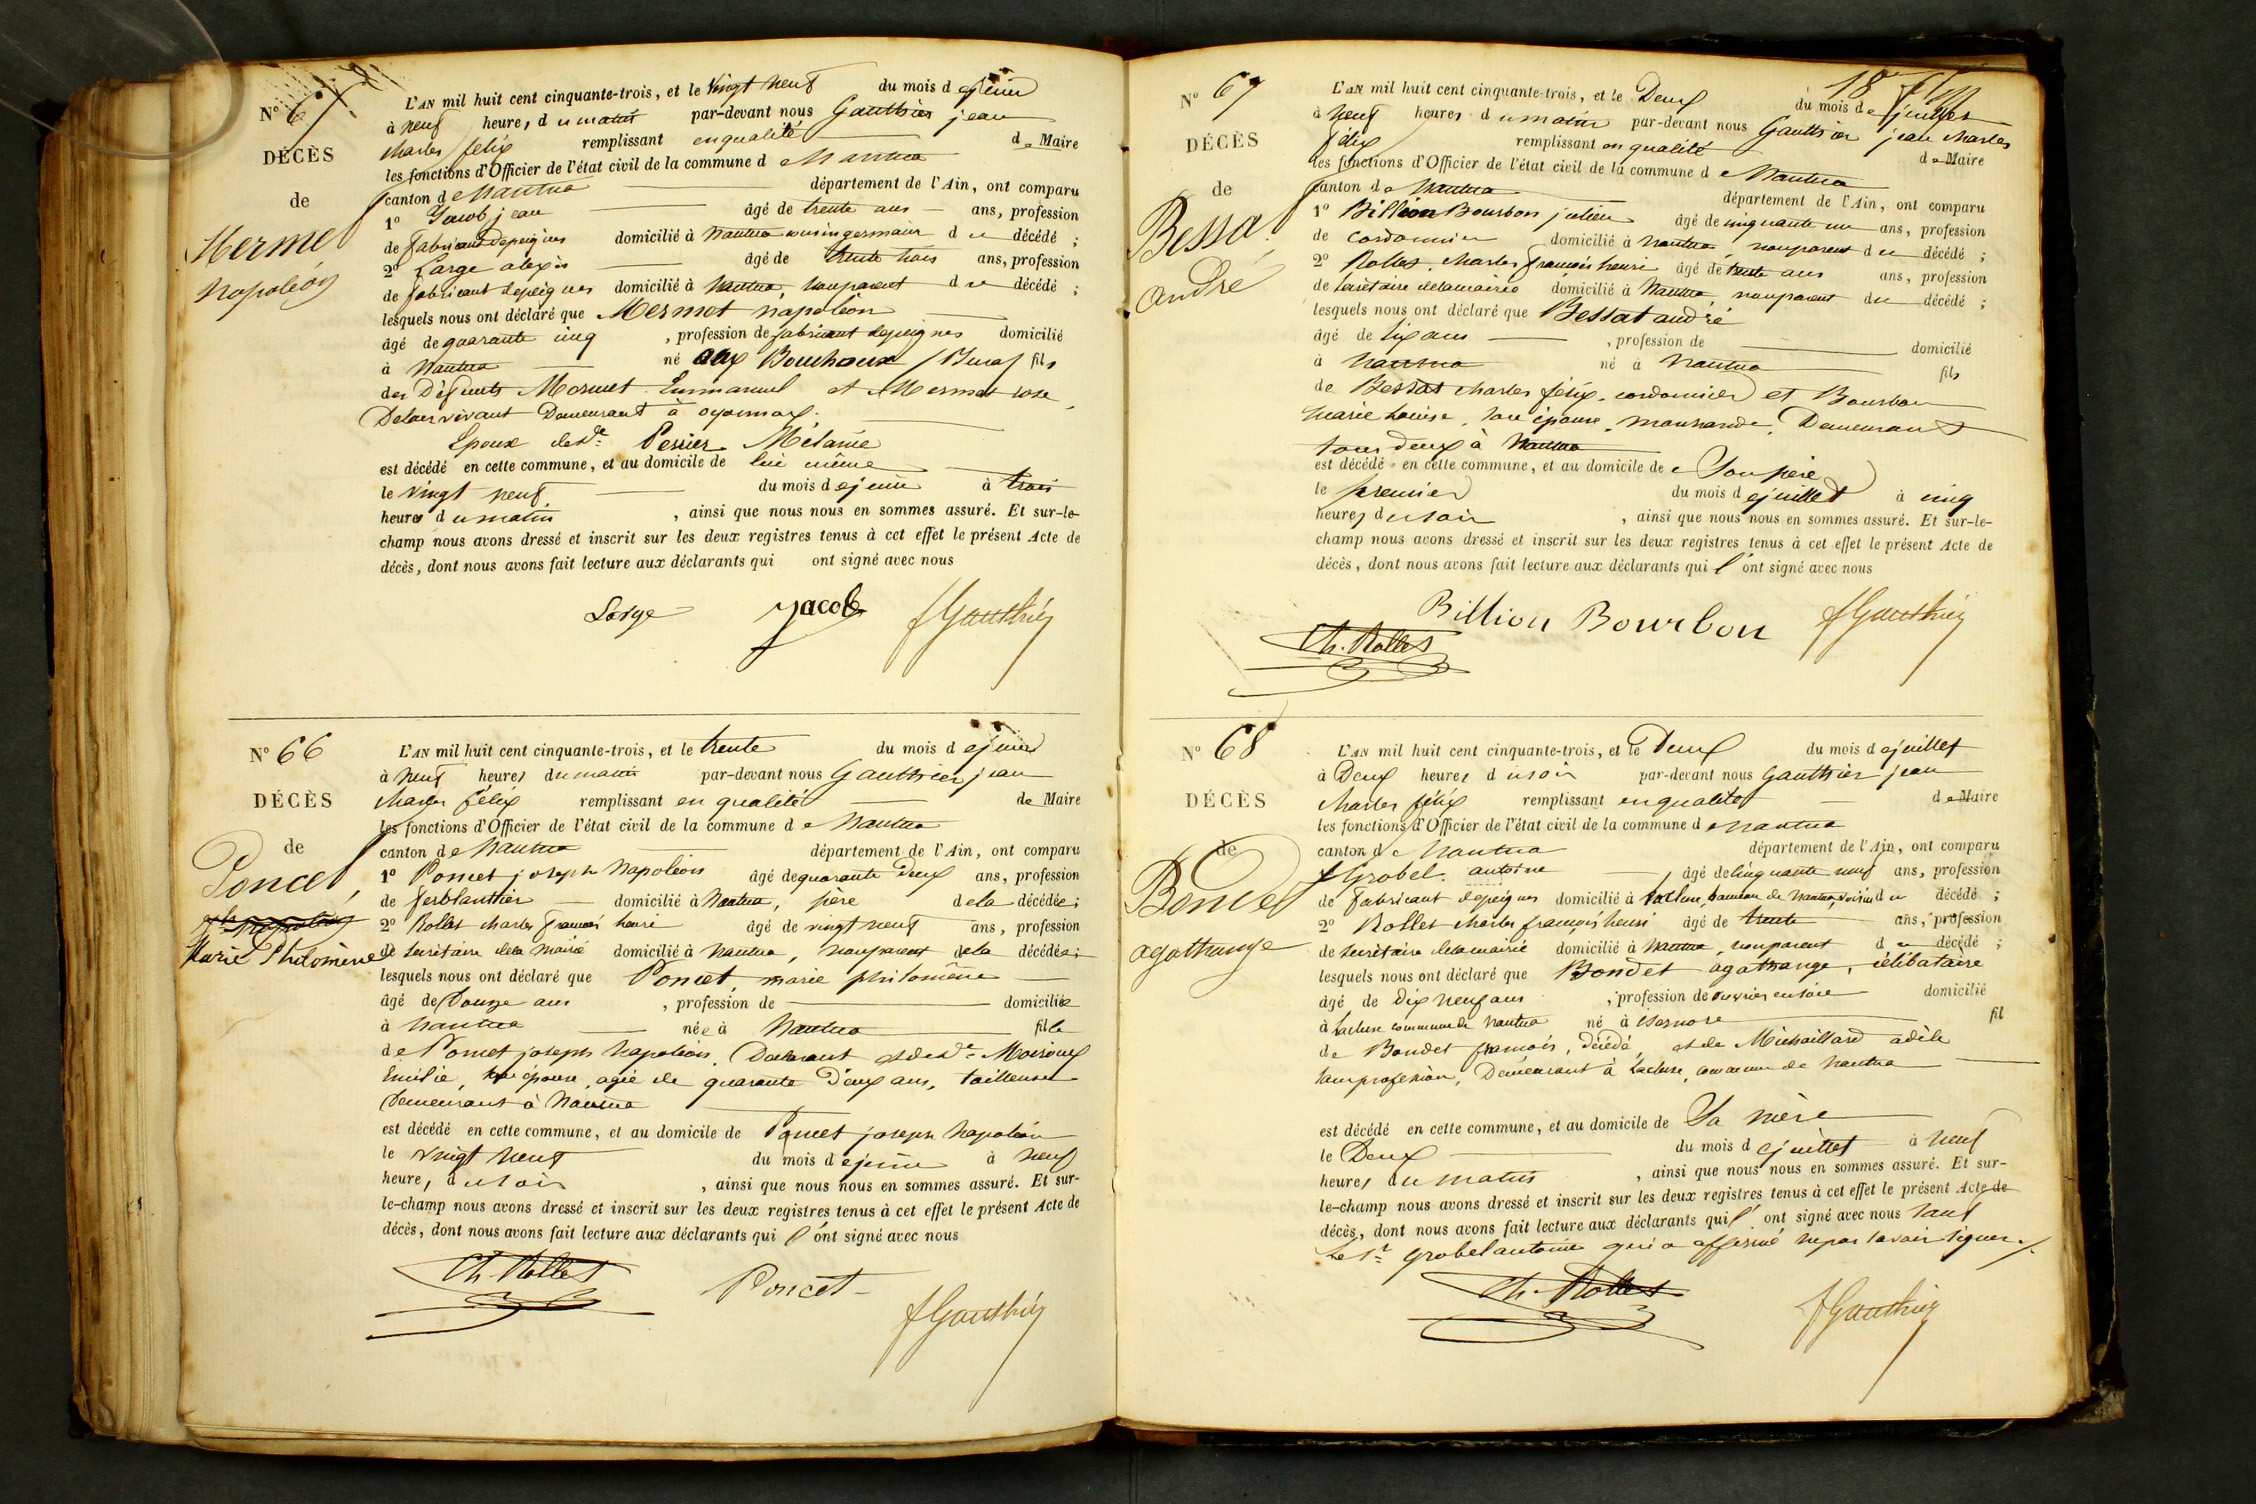 N° 6
DÉCÈS
de
Mermet
napoléon
L'AN mil huit cent cinquante-trois, et le vingt neuf du mois de juin
à neuf heures du matin par-devant nous Gauthier jean
charles félix remplissant en qualité de Maire
les fonctions d'Officier de l'état civil de la commune de Nantua
canton de Nantua département de l'Ain, ont comparu
1° Jacob jean âgé de trente ans ans, profession
de fabricant depeignes domicilié à Nantua cousin germain du décédé ;
2° Large alexis âgé de trente trois ans, profession
de fabricant depeignes domicilié à Nantua, nonparent du décédé ;
lesquels nous ont déclaré que Mermet napoléon
âgé de quarante cinq , profession de fabricant depeignes domicilié
à Nantua né aux Bouchoux (Jura) fils
des Défunts Mermet Emmanuel et Mermet rose,
De leur vivant Demeurant à oyonnax.
Epoux de De Perrier Mélanie
est décédé en cette commune, et au domicile de lui même
le vingt neuf du mois de juin à trois
heures du matin , ainsi que nous nous en sommes assuré. Et sur-le-
champ nous avons dressé et inscrit sur les deux registres tenus à cet effet le présent Acte de
décès, dont nous avons fait lecture aux déclarants qui ont signé avec nous
Large Jacob fGauthier
N° 66
DÉCÈS
de
Poncet,
Marie Philomène
L'AN mil huit cent cinquante-trois, et le trente du mois de juin
à neuf heures du matin par-devant nous Gauthier jean
charles félix remplissant en qualité de Maire
les fonctions d'Officier de l'état civil de la commune de Nantua
canton de Nantua département de l'Ain, ont comparu
1° Poncet joseph Napoléon âgé de quarante Deux ans, profession
de ferblantier domicilié à Nantua, père de la décédée ;
2° Rollet charles françois henri âgé de vingt neuf ans, profession
de secrétaire dela mairie domicilié à Nantua, nonparent dela décédée ;
lesquels nous ont déclaré que Poncet, marie philomène
âgé de Douze ans , profession de domiciliée
à Nantua née à Nantua fille
de Poncet joseph Napoléon, Déclarant et de De Moiroux
Emilie, son épouse, agée de quarante Deux ans, tailleuse
Demeurant à Nantua
est décédé en cette commune, et au domicile de Poncet joseph Napoléon
le vingt neuf du mois de juin à neuf
heures du soir , ainsi que nous nous en sommes assuré. Et sur-
le-champ nous avons dressé et inscrit sur les deux registres tenus à cet effet le présent Acte de
décès, dont nous avons fait lecture aux déclarants qui l'ont signé avec nous
Ch. Rollet Poncet fGauthier
18
N° 67
DÉCÈS
de
Bessat
André
L'AN mil huit cent cinquante-trois, et le Deux du mois de juillet
à neuf heures du matin par-devant nous Gauthier jean charles
félix remplissant en qualité de Maire
les fonctions d'Officier de l'état civil de la commune de Nantua
canton de Nantua département de l'Ain, ont comparu
1° Billion Bourbon julien âgé de cinquante un ans, profession
de cordonnier domicilié à Nantua, nonparent du décédé ;
2° Rollet, charles françois henri âgé de trente ans ans, profession
de secrétaire delamairie domicilié à Nantua, nonparent du décédé ;
lesquels nous ont déclaré que Bessat andré
âgé de six ans , profession de domicilié
à Nantua né à Nantua fils
de Bessat charles félix, cordonnier et Bourbon
marie Louise, son épouse, marchande, Demeurant
tous deux à Nantua
est décédé en cette commune, et au domicile de Son père
le premier du mois de juillet à cinq
heures du soir , ainsi que nous nous en sommes assuré. Et sur-le-
champ nous avons dressé et inscrit sur les deux registres tenus à cet effet le présent Acte de
décès, dont nous avons fait lecture aux déclarants qui l'ont signé avec nous
Billion Bourbon fGauthier
Ch. Rollet
N° 68
DÉCÈS
de
Bondet
agathange
L'AN mil huit cent cinquante-trois, et le Deux du mois de juillet
à Deux heures du soir par-devant nous Gauthier jean
charles félix remplissant en qualité de Maire
les fonctions d'Officier de l'état civil de la commune de Nantua
canton de Nantua département de l'Ain, ont comparu
Grobel antoine âgé de cinquante neuf ans, profession
de fabricant depeignes domicilié à Lacluse, hameau de Nantua, voisin du décédé ;
2° Rollet charles françois henri âgé de trente ans, profession
de secrétaire delamairie domicilié à Nantua, nonparent du décédé ;
lesquels nous ont déclaré que Bondet agathange, célibataire
âgé de dix neuf ans , profession de ouvrier en soie domicilié
à Lacluse commune de Nantua né à Izernore fil
de Bondet françois, Décédé, et de Michaillard adèle
sans profession, Demeurant à Lacluse, commune de Nantua
est décédé en cette commune, et au domicile de Sa mère
le Deux du mois de juillet à neuf
heures du matin , ainsi que nous nous en sommes assuré. Et sur-
le-champ nous avons dressé et inscrit sur les deux registres tenus à cet effet le présent Acte de
décès, dont nous avons fait lecture aux déclarants qui l'ont signé avec nous sauf
Le Sr grobel antoine qui a affirmé ne pas savoir signer.
Ch. Rollet fGauthier